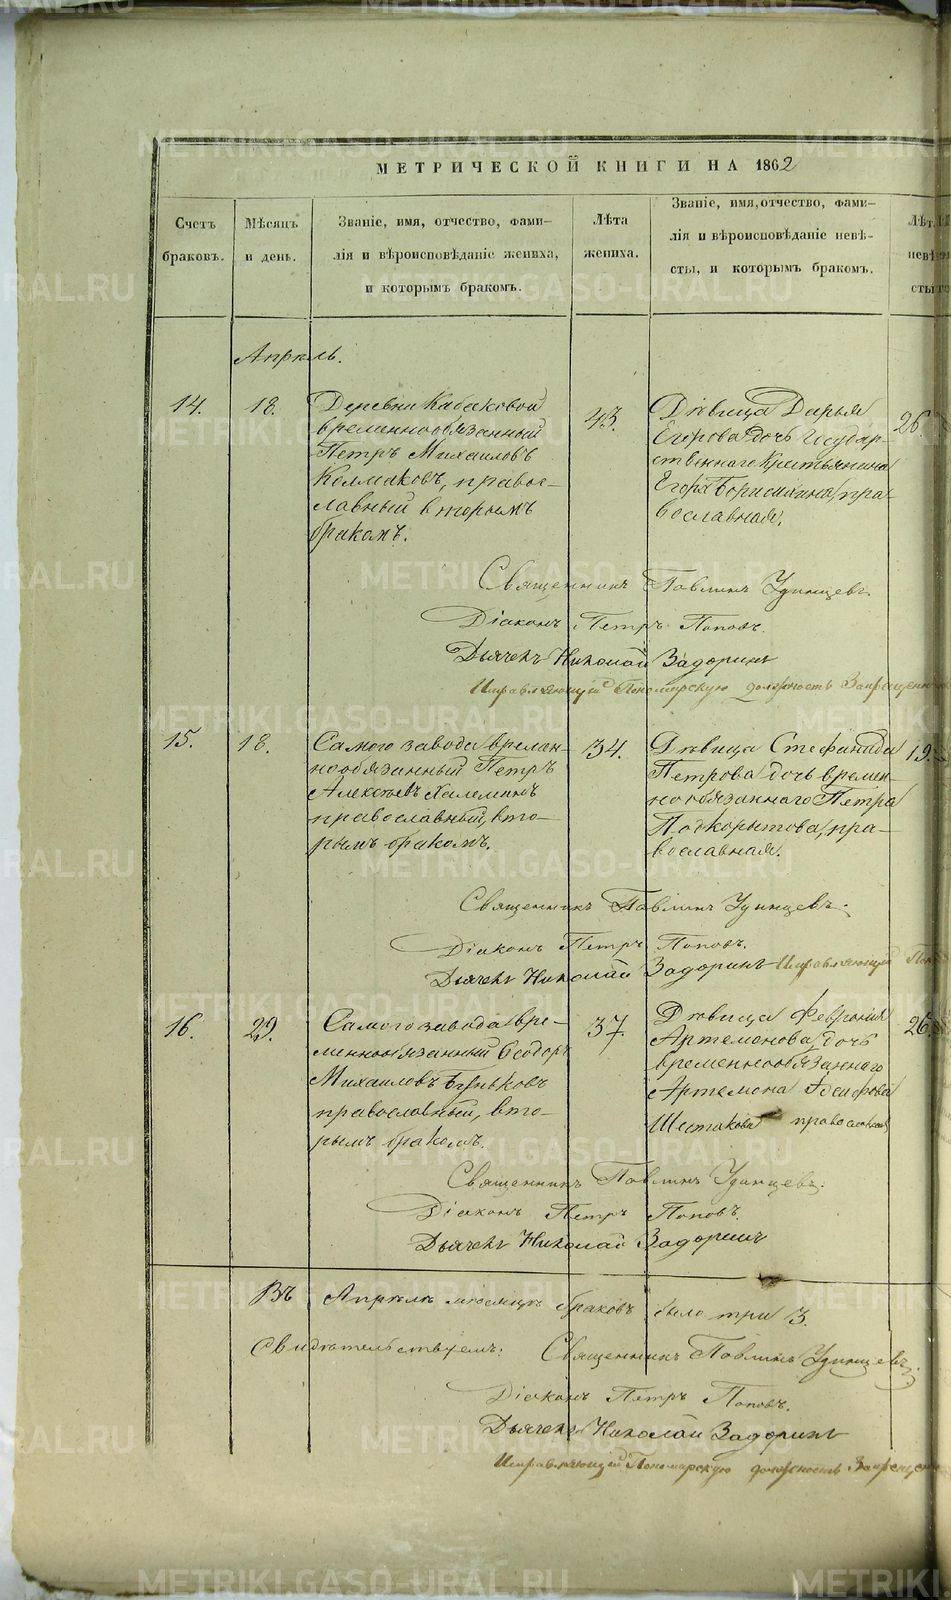 МЕТРИЧЕСКОЙ КНИГИ НА 1862
Счетъ браковъ.
Мѣсяцъ и день.
Званіе, имя, отчество, фами-
лія и вѣроисповѣданіе жениха,
и которымъ бракомъ.
Лѣта жениха.
Званіе, имя, отчество, фами-
лія и вѣроисповѣданіе невѣ-
сты, и которымъ бракомъ.
Лѣт
невѣ
сты
Апрѣль.
14.
18.
Деревни Кабаковой
временнообязанный
Петръ Михаиловъ
Колмаковъ, право-
славный вторымъ
бракомъ.
43.
Дѣвица Дарья
Егорова дочь Государ-
ственнаго Крестьянина
Егора Борисихина, пра-
вославная.
26.
Священникъ Павлинъ Удинцевъ.
Діаконъ Петръ Поповъ.
Дьячекъ Николай Задоринъ
Исправляющий Пономарскую должность
15.
18.
Самого завода времан-
нообязанный Петръ
Алексѣевъ Халеминъ
православный, вто-
рымъ бракомъ.
34.
Дѣвица Стефанида
Петрова дочь времен-
нообязаннаго Петра
Подкорытова, пра-
вославная.
19.
Священникъ Павлинъ Удинцевъ.
Діаконъ Петръ Поповъ.
Дьячекъ Николай Задоринъ Исправляющий
16.
29.
Самого завода вре-
меннообязанный Ѳеодоръ
Михаиловъ Буньковъ
православный, вто-
рымъ бракомъ.
37.
Дѣвица Феврония
Артемонова дочь
временнообязаннаго
Артемона
Шестакова православная
26.
Священникъ Павлинъ Удинцевъ.
Діаконъ Петръ Поповъ.
Дьячекъ Николай Задоринъ
Въ Апрѣлѣ мѣсяцѣ браковъ было три 3.
Свидѣтельствуемъ: Священникъ Павлинъ Удинцевъ.
Діаконъ Петръ Поповъ.
Дьячекъ Николай Задоринъ
Исправляющий Пономарскую должность
METRIKI.GASO-URAL.RU